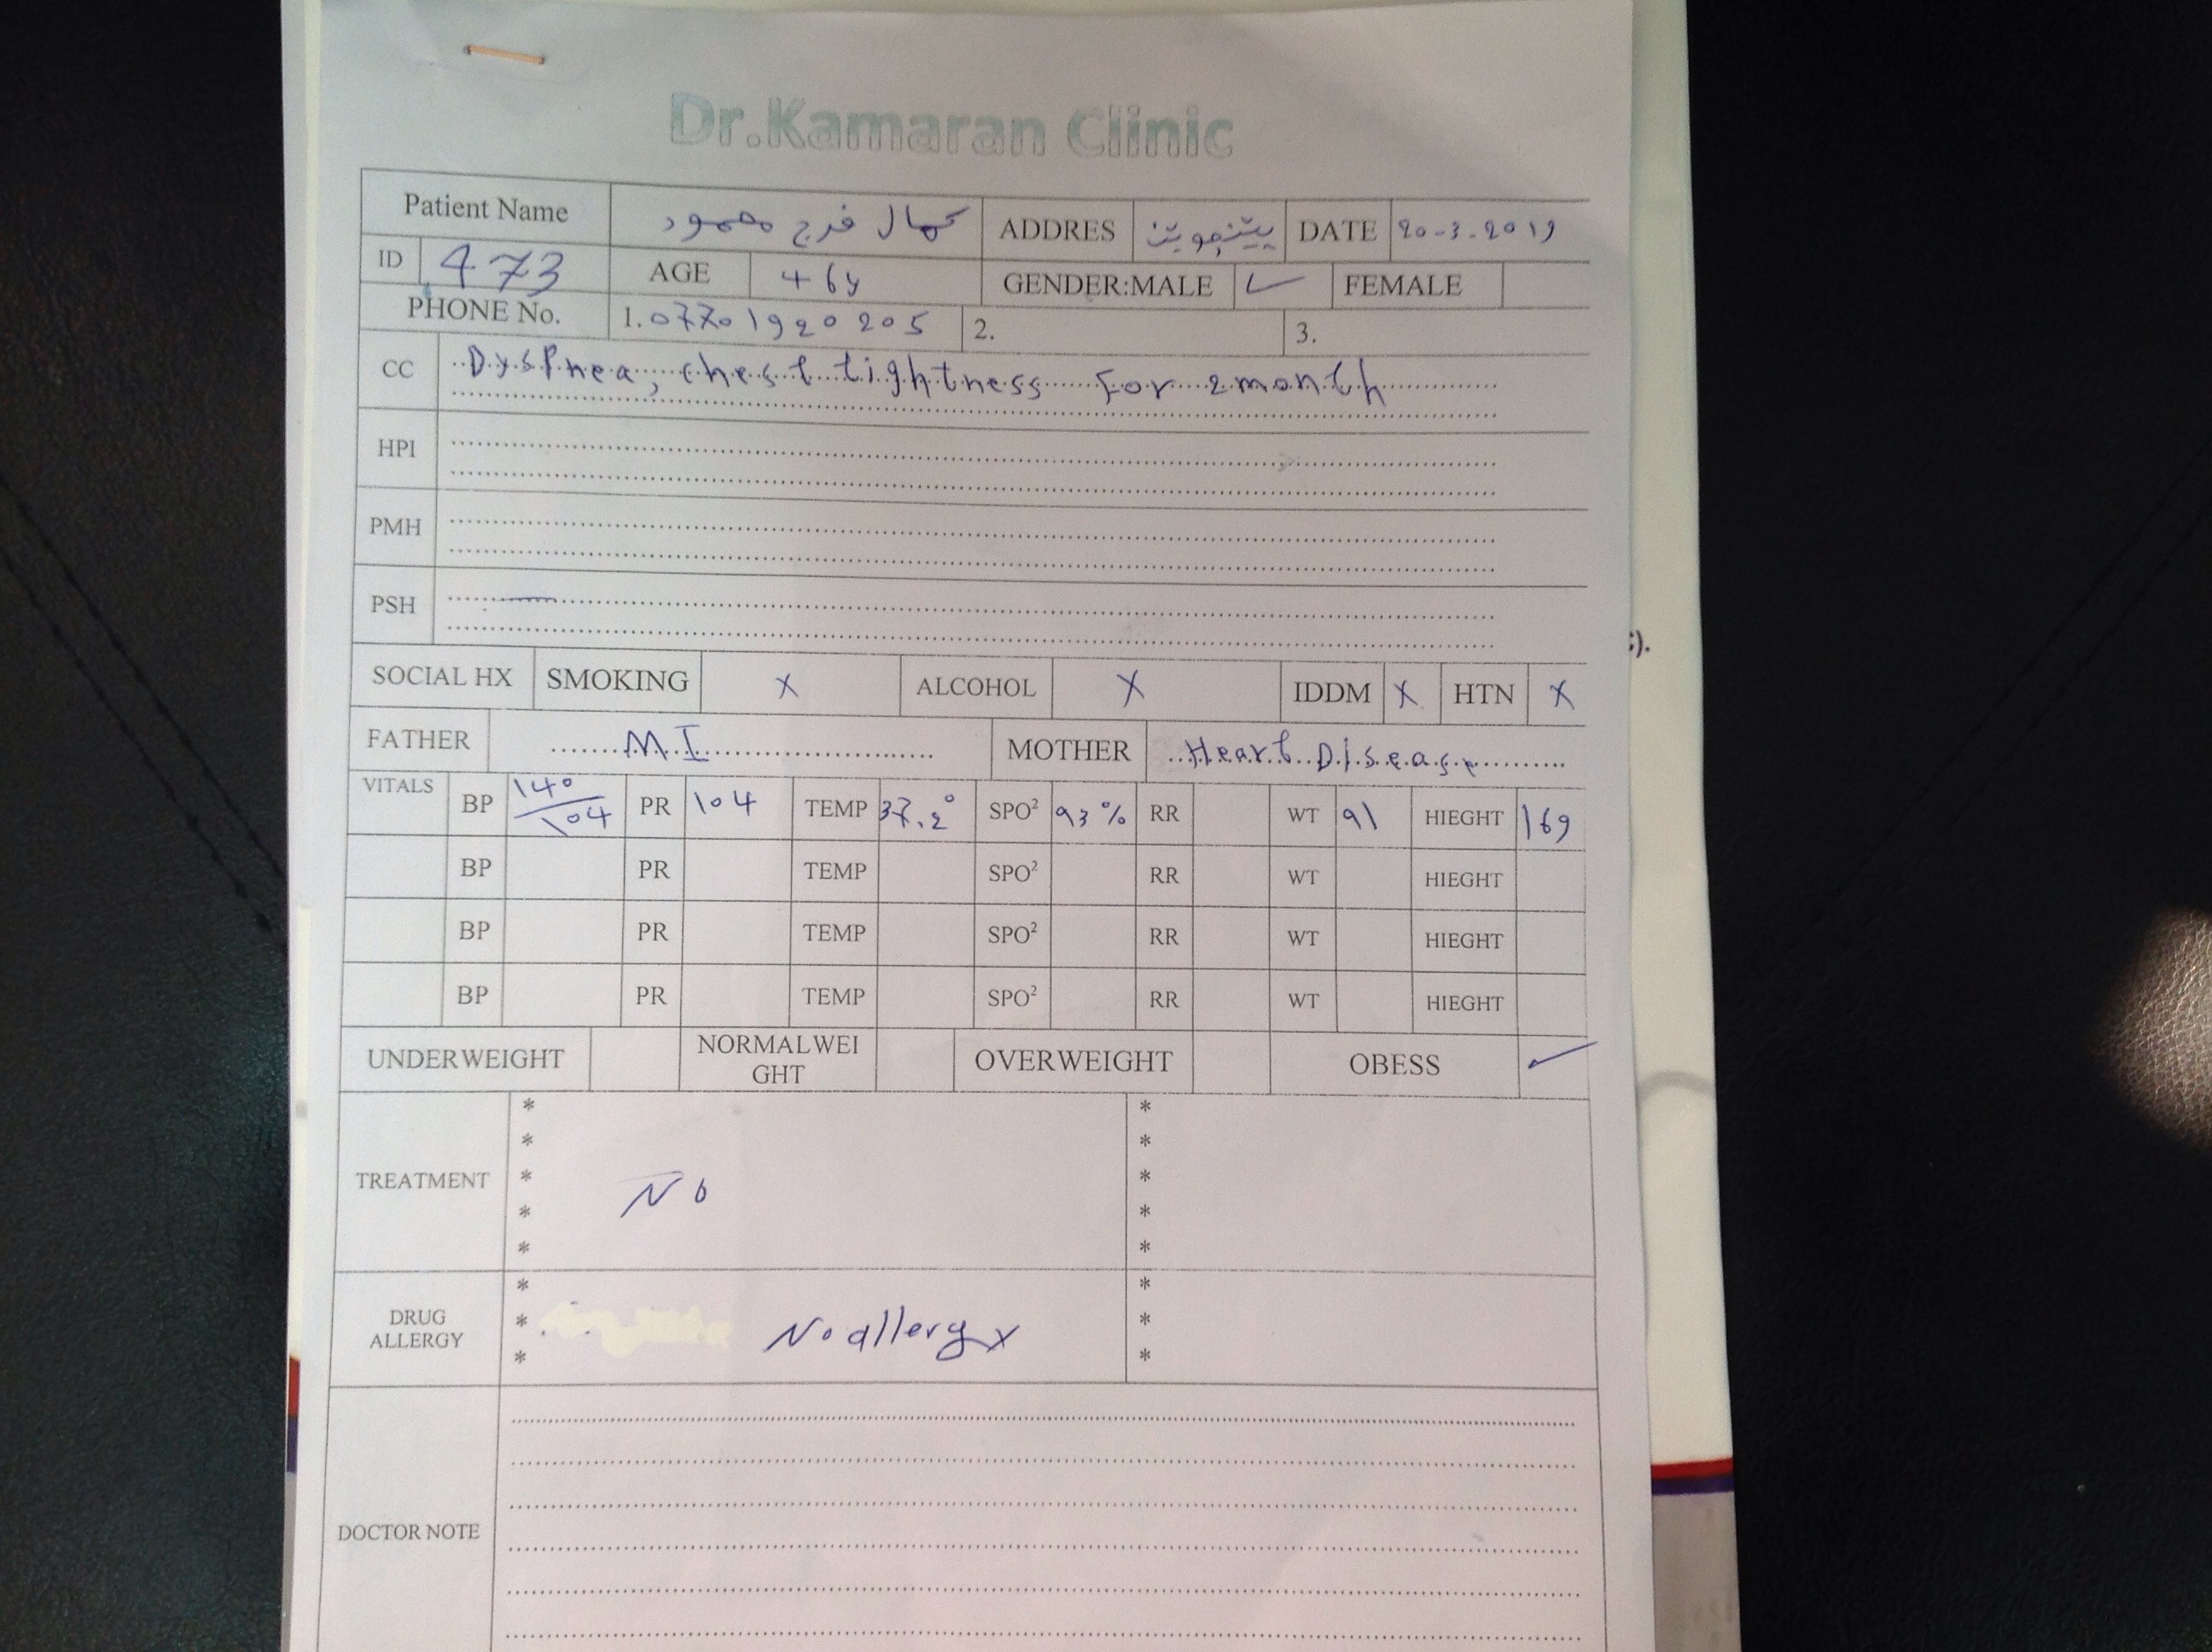 Dr.Kamaran Clinic
Patient Name كمال فرج محمود ADDRES پێنجوێن DATE 20-3-2019
ID 473 AGE 46y GENDER:MALE ✓ FEMALE
PHONE No. 1.07701920205 2. 3.
CC Dyspnea, chest tightness For 2month
HPI
PMH
PSH
SOCIAL HX SMOKING X ALCOHOL X IDDM X HTN X
FATHER MI MOTHER Heart Disease
VITALS BP 140/104 PR 104 TEMP 37.2° SPO² 93% RR WT 91 HIEGHT 169
BP PR TEMP SPO² RR WT HIEGHT
BP PR TEMP SPO² RR WT HIEGHT
BP PR TEMP SPO² RR WT HIEGHT
UNDERWEIGHT NORMALWEI OVERWEIGHT OBESS ✓
GHT
* *
* *
TREATMENT * No *
* *
* *
* *
DRUG * No allergy *
ALLERGY * *
DOCTOR NOTE
).